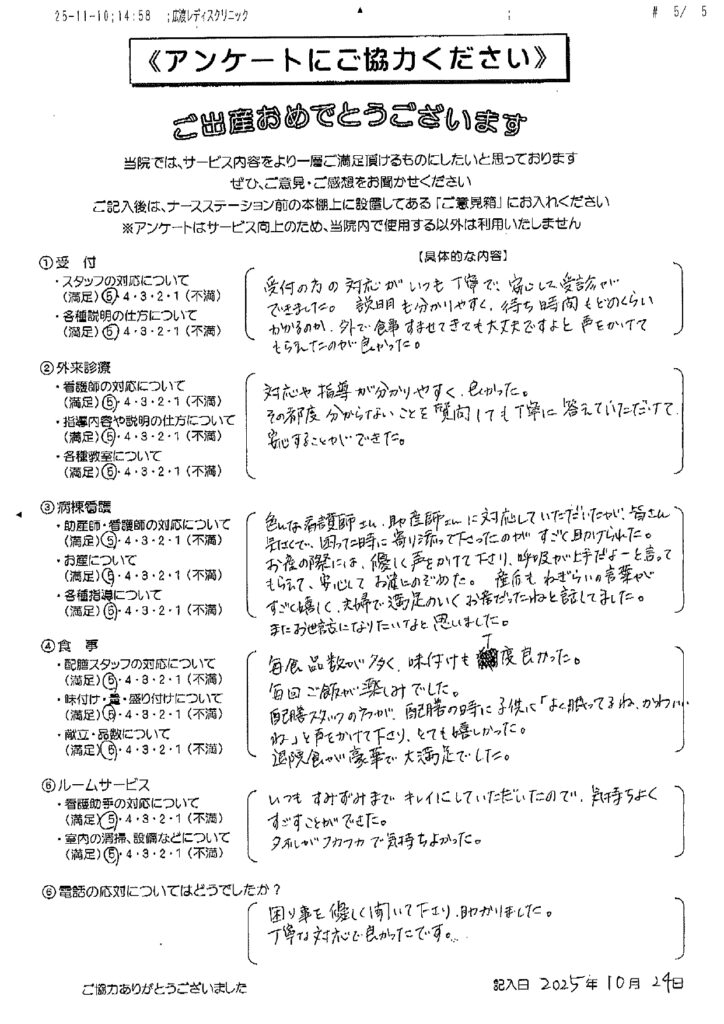 25-11-10;14:58 ;広瀬レディスクリニック ; # 5/ 5
《アンケートにご協力ください》
ご出産おめでとうございます
当院では、サービス内容をより一層ご満足頂けるものにしたいと思っております
ぜひ、ご意見・ご感想をお聞かせください
ご記入後は、ナースステーション前の本棚上に設置してある「ご意見箱」にお入れください
※アンケートはサービス向上のため、当院内で使用する以外は利用いたしません
①受 付 【具体的な内容】
・スタッフの対応について
(満足)5・4・3・2・1(不満)
・各種説明の仕方について
(満足)5・4・3・2・1(不満)
受付の方の対応がいつも丁寧で、安心して受診が
できました。 説明も分かりやすく、待ち時間もどのくらい
かかるのか、外で食事すませてきても大丈夫ですよと声をかけて
もらえたのが良かった。
②外来診療
・看護師の対応について
(満足)5・4・3・2・1(不満)
・指導内容や説明の仕方について
(満足)5・4・3・2・1(不満)
・各種教室について
(満足)5・4・3・2・1(不満)
対応や指導が分かりやすく、良かった。
その都度分からないことを質問しても丁寧に答えていただけて
安心することができた。
③病棟看護
・助産師・看護師の対応について
(満足)5・4・3・2・1(不満)
・お産について
(満足)5・4・3・2・1(不満)
・各種指導について
(満足)5・4・3・2・1(不満)
色んな看護師さん、助産師さんに対応していただいたが、皆さん
気さくで、困った時に寄り添って下さったのがすごく助けられた。
お産の際には、優しく声をかけて下さり、呼吸が上手だよーと言って
もらえて、安心してお産にのぞめた。 産後もねぎらいの言葉が
すごく嬉しく、夫婦で満足のいくお産だったねと話してました。
またお世話になりたいなと思いました。
④食 事
・配膳スタッフの対応について
(満足)5・4・3・2・1(不満)
・味付け・量・盛り付けについて
(満足)5・4・3・2・1(不満)
・献立・品数について
(満足)5・4・3・2・1(不満)
毎食品数が多く、味付けも丁度良かった。
毎回ご飯が楽しみでした。
配膳スタッフの方が、配膳の時に子供に「よく眠ってるね、かわいい
ね」と声をかけて下さり、とても嬉しかった。
退院食が豪華で大満足でした。
⑤ルームサービス
・看護助手の対応について
(満足)5・4・3・2・1(不満)
・室内の清掃、設備などについて
(満足)5・4・3・2・1(不満)
いつもすみずみまでキレイにしていただいたので、気持ちよく
すごすことができた。
タオルがフカフカで気持ちよかった。
⑥電話の応対についてはどうでしたか?
困り事を優しく聞いて下さり、助かりました。
丁寧な対応で良かったです。
ご協力ありがとうございました
記入日 2025年 10月 24日